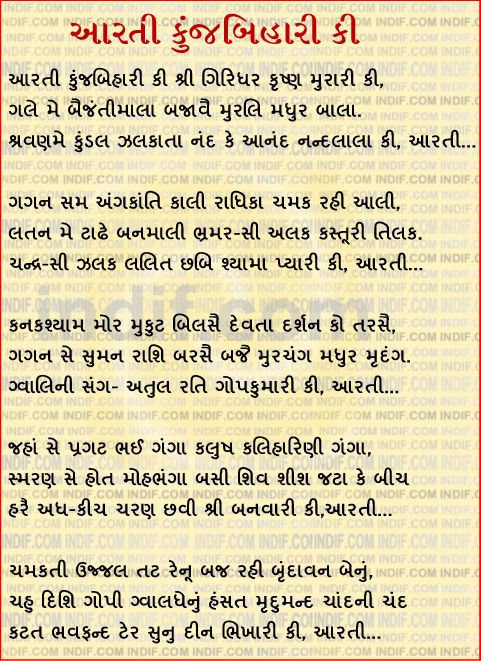 આરતી કુંજબિહારી કી
આરતી કુંજબિહારી કી શ્રી ગિરિધર કૃષ્ણ મુરારી કી,
ગલે મે બૈજંતીમાલા બજાવૈ મુરલિ મધુર બાલા.
શ્રવણમે કુંડલ ઝલકાતા નંદ કે આનંદ નન્દલાલા કી, આરતી...
ગગન સમ અંગકાંતિ કાલી રાધિકા ચમક રહી આલી,
લતન મે ટાઢે બનમાલી ભ્રમર-સી અલક કસ્તૂરી તિલક.
ચન્દ્ર-સી ઝલક લલિત છબિ શ્યામા પ્યારી કી, આરતી...
કનકશ્યામ મોર મુકુટ બિલસૈ દેવતા દર્શન કો તરસૈ,
ગગન સે સુમન રાશિ બરસૈ બજૈ મુરચંગ મધુર મૃદંગ.
ગ્વાલિની સંગ- અતુલ રતિ ગોપકુમારી કી, આરતી...
જહાં સે પ્રગટ ભઈ ગંગા કલુષ કલિહારિણી ગંગા,
સ્મરણ સે હોત મોહભંગા બસી શિવ શીશ જટા કે બીચ
હરૈ અધ-કીચ ચરણ છવી શ્રી બનવારી કી,આરતી...
ચમકતી ઉજ્જલ તટ રેનૂ બજ રહી બૃંદાવન બેનું,
ચહુ દિશિ ગોપી ગ્વાલધેનું હંસત મૃદુમન્દ ચાંદની ચંદ
કટત ભવફન્દ ટેર સુનુ દીન ભિખારી કી, આરતી...
indif.com